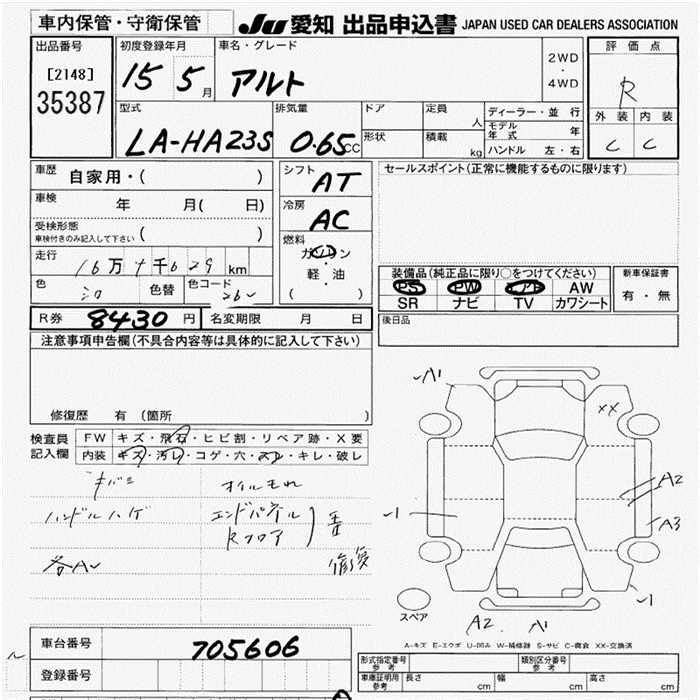 車内保管・守衛保管
JU 愛知 出品申込書 JAPAN USED CAR DEALERS ASSOCIATION
出品番号
[2148]
35387
初度登録年月
15 5月
車名・グレード
アルト
2WD
・
4WD
評価点
R
外装 内装
C C
型式
LA-HA23S
排気量
0.65CC
ドア
形状
定員
人
積載
kg
ディーラー・並行
モデル年式 年
ハンドル 左・右
車歴
自家用・( )
車検
年 月( 日)
受検形態
車検付きのみ記入して下さい ( )
走行
16万 千629 km
色
シロ
色替
色コード
26U
シフト
AT
冷房
AC
燃料
ガソリン
・
軽・油
( )
セールスポイント(正常に機能するものに限ります)
装備品(純正品に限り○をつけてください)
PS PW エアB AW
SR ナビ TV カワシート
新車保証書
有・無
R券 8430円
名変期限 月 日
後日品
注意事項申告欄(不具合内容等は具体的に記入して下さい)
修復歴 有 (箇所 )
検査員
記入欄
FW キズ・飛石・ヒビ割・リペア跡・X要
内装 キズ・汚レ・コゲ・穴・スレ・キレ・破レ
キバミ
オイルモれ
ハンドルハゲ
エンドパネル
Rフロア
各A
A1
XX
A2
A3
1
1
A2
A1
スペア
A-キズ E-エクボ U-凹み W-補修跡 S-サビ C-腐食 XX-交換済
車台番号
705606
登録番号
形式指定番号
参考
類別区分番号
参考
車庫証明用
参考
長さ cm
幅 cm
高さ cm